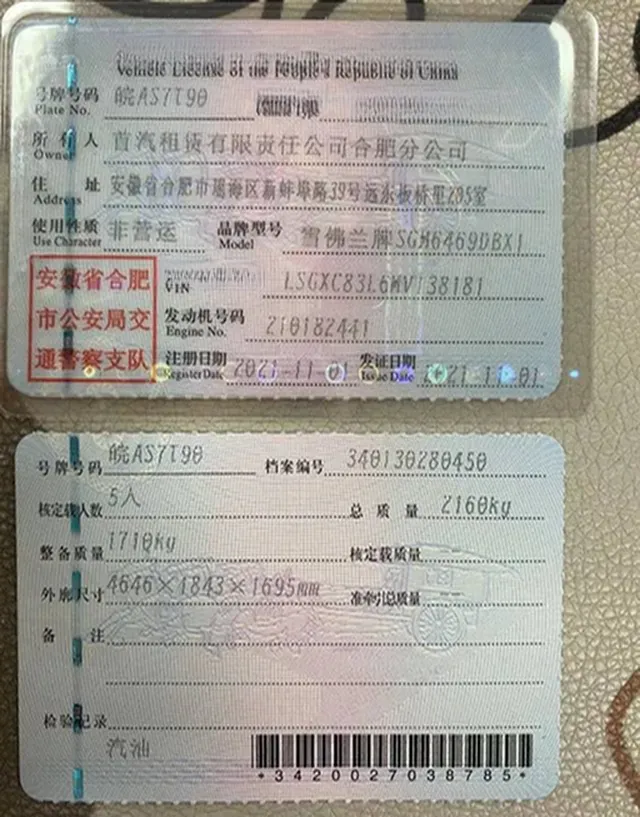 Vehicle License of the People's Republic of China
号牌号码 皖AS7T90
Plate No.
所有人 首汽租赁有限责任公司合肥分公司
Owner
住址 安徽省合肥市瑶海区新蚌埠路39号远东板桥里205室
Address
使用性质 非营运 品牌型号 雪佛兰牌SGM6469DBX1
Use Character Model
安徽省合肥
市公安局交
通警察支队
VIN LSGXC83L6MV138181
发动机号码 210182441
Engine No.
注册日期 2021-11-01 发证日期 2021-11-01
Register Date Issue Date
号牌号码 皖AS7T90 档案编号 340130280450
核定载人数 5人 总质量 2160kg
整备质量 1710kg 核定载质量
外廓尺寸 4646×1843×1695mm 准牵引总质量
备注
检验记录
汽油
*3420027038785*